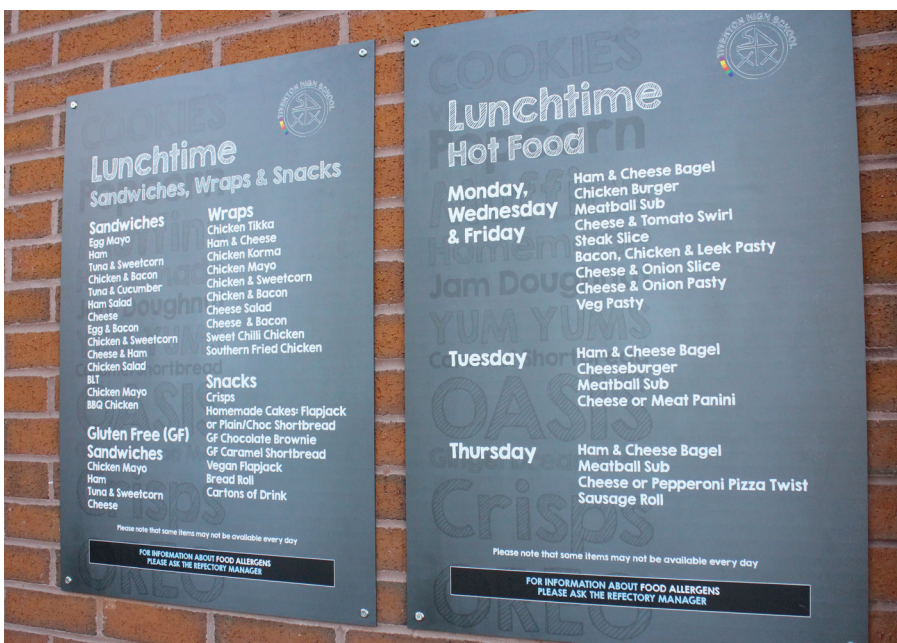 TIVERTON HIGH SCHOOL
COOKIES
Lunchtime
Sandwiches, Wraps & Snacks
Sandwiches
Egg Mayo
Ham
Tuna & Sweetcorn
Chicken & Bacon
Tuna & Cucumber
Ham Salad
Cheese
Egg & Bacon
Chicken & Sweetcorn
Cheese & Ham
Chicken Salad
BLT
Chicken Mayo
BBQ Chicken
Gluten Free (GF)
Sandwiches
Chicken Mayo
Ham
Tuna & Sweetcorn
Cheese
Wraps
Chicken Tikka
Ham & Cheese
Chicken Korma
Chicken Mayo
Chicken & Sweetcorn
Chicken & Bacon
Cheese Salad
Cheese & Bacon
Sweet Chilli Chicken
Southern Fried Chicken
Snacks
Crisps
Homemade Cakes: Flapjack
or Plain/Choc Shortbread
GF Chocolate Brownie
GF Caramel Shortbread
Vegan Flapjack
Bread Roll
Cartons of Drink
OASIS
Crisps
OREO
Please note that some items may not be available every day
FOR INFORMATION ABOUT FOOD ALLERGENS
PLEASE ASK THE REFECTORY MANAGER
TIVERTON HIGH SCHOOL
COOKIES
Lunchtime
Popcorn
Hot Food
Monday,
Wednesday
& Friday
Ham & Cheese Bagel
Chicken Burger
Meatball Sub
Cheese & Tomato Swirl
Steak Slice
Bacon, Chicken & Leek Pasty
Cheese & Onion Slice
Cheese & Onion Pasty
Veg Pasty
YUM YUMS
Tuesday
Ham & Cheese Bagel
Cheeseburger
Meatball Sub
Cheese or Meat Panini
OASIS
Thursday
Ham & Cheese Bagel
Meatball Sub
Cheese or Pepperoni Pizza Twist
Sausage Roll
Crisps
OREO
Please note that some items may not be available every day
FOR INFORMATION ABOUT FOOD ALLERGENS
PLEASE ASK THE REFECTORY MANAGER